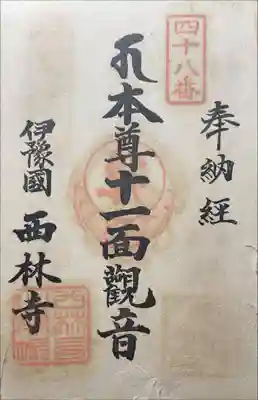 四十八番
奉納経
本尊十一面觀音
伊豫國
西林寺